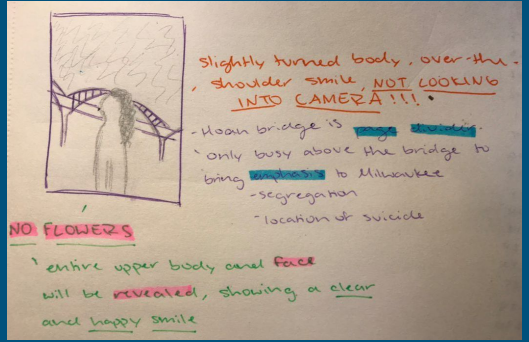 slightly turned body, over-the-
shoulder smile, NOT LOOKING
INTO CAMERA!!!
- Hoan bridge is page dividing.
- only busy above the bridge to
bring emphasis to Milwaukee
- segregation
- location of suicide
NO FLOWERS
- entire upper body and face
will be revealed, showing a clear
and happy smile